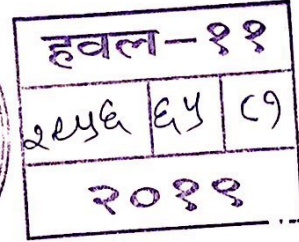 हवल-११
२९५६ ६५ ८१
२०१९